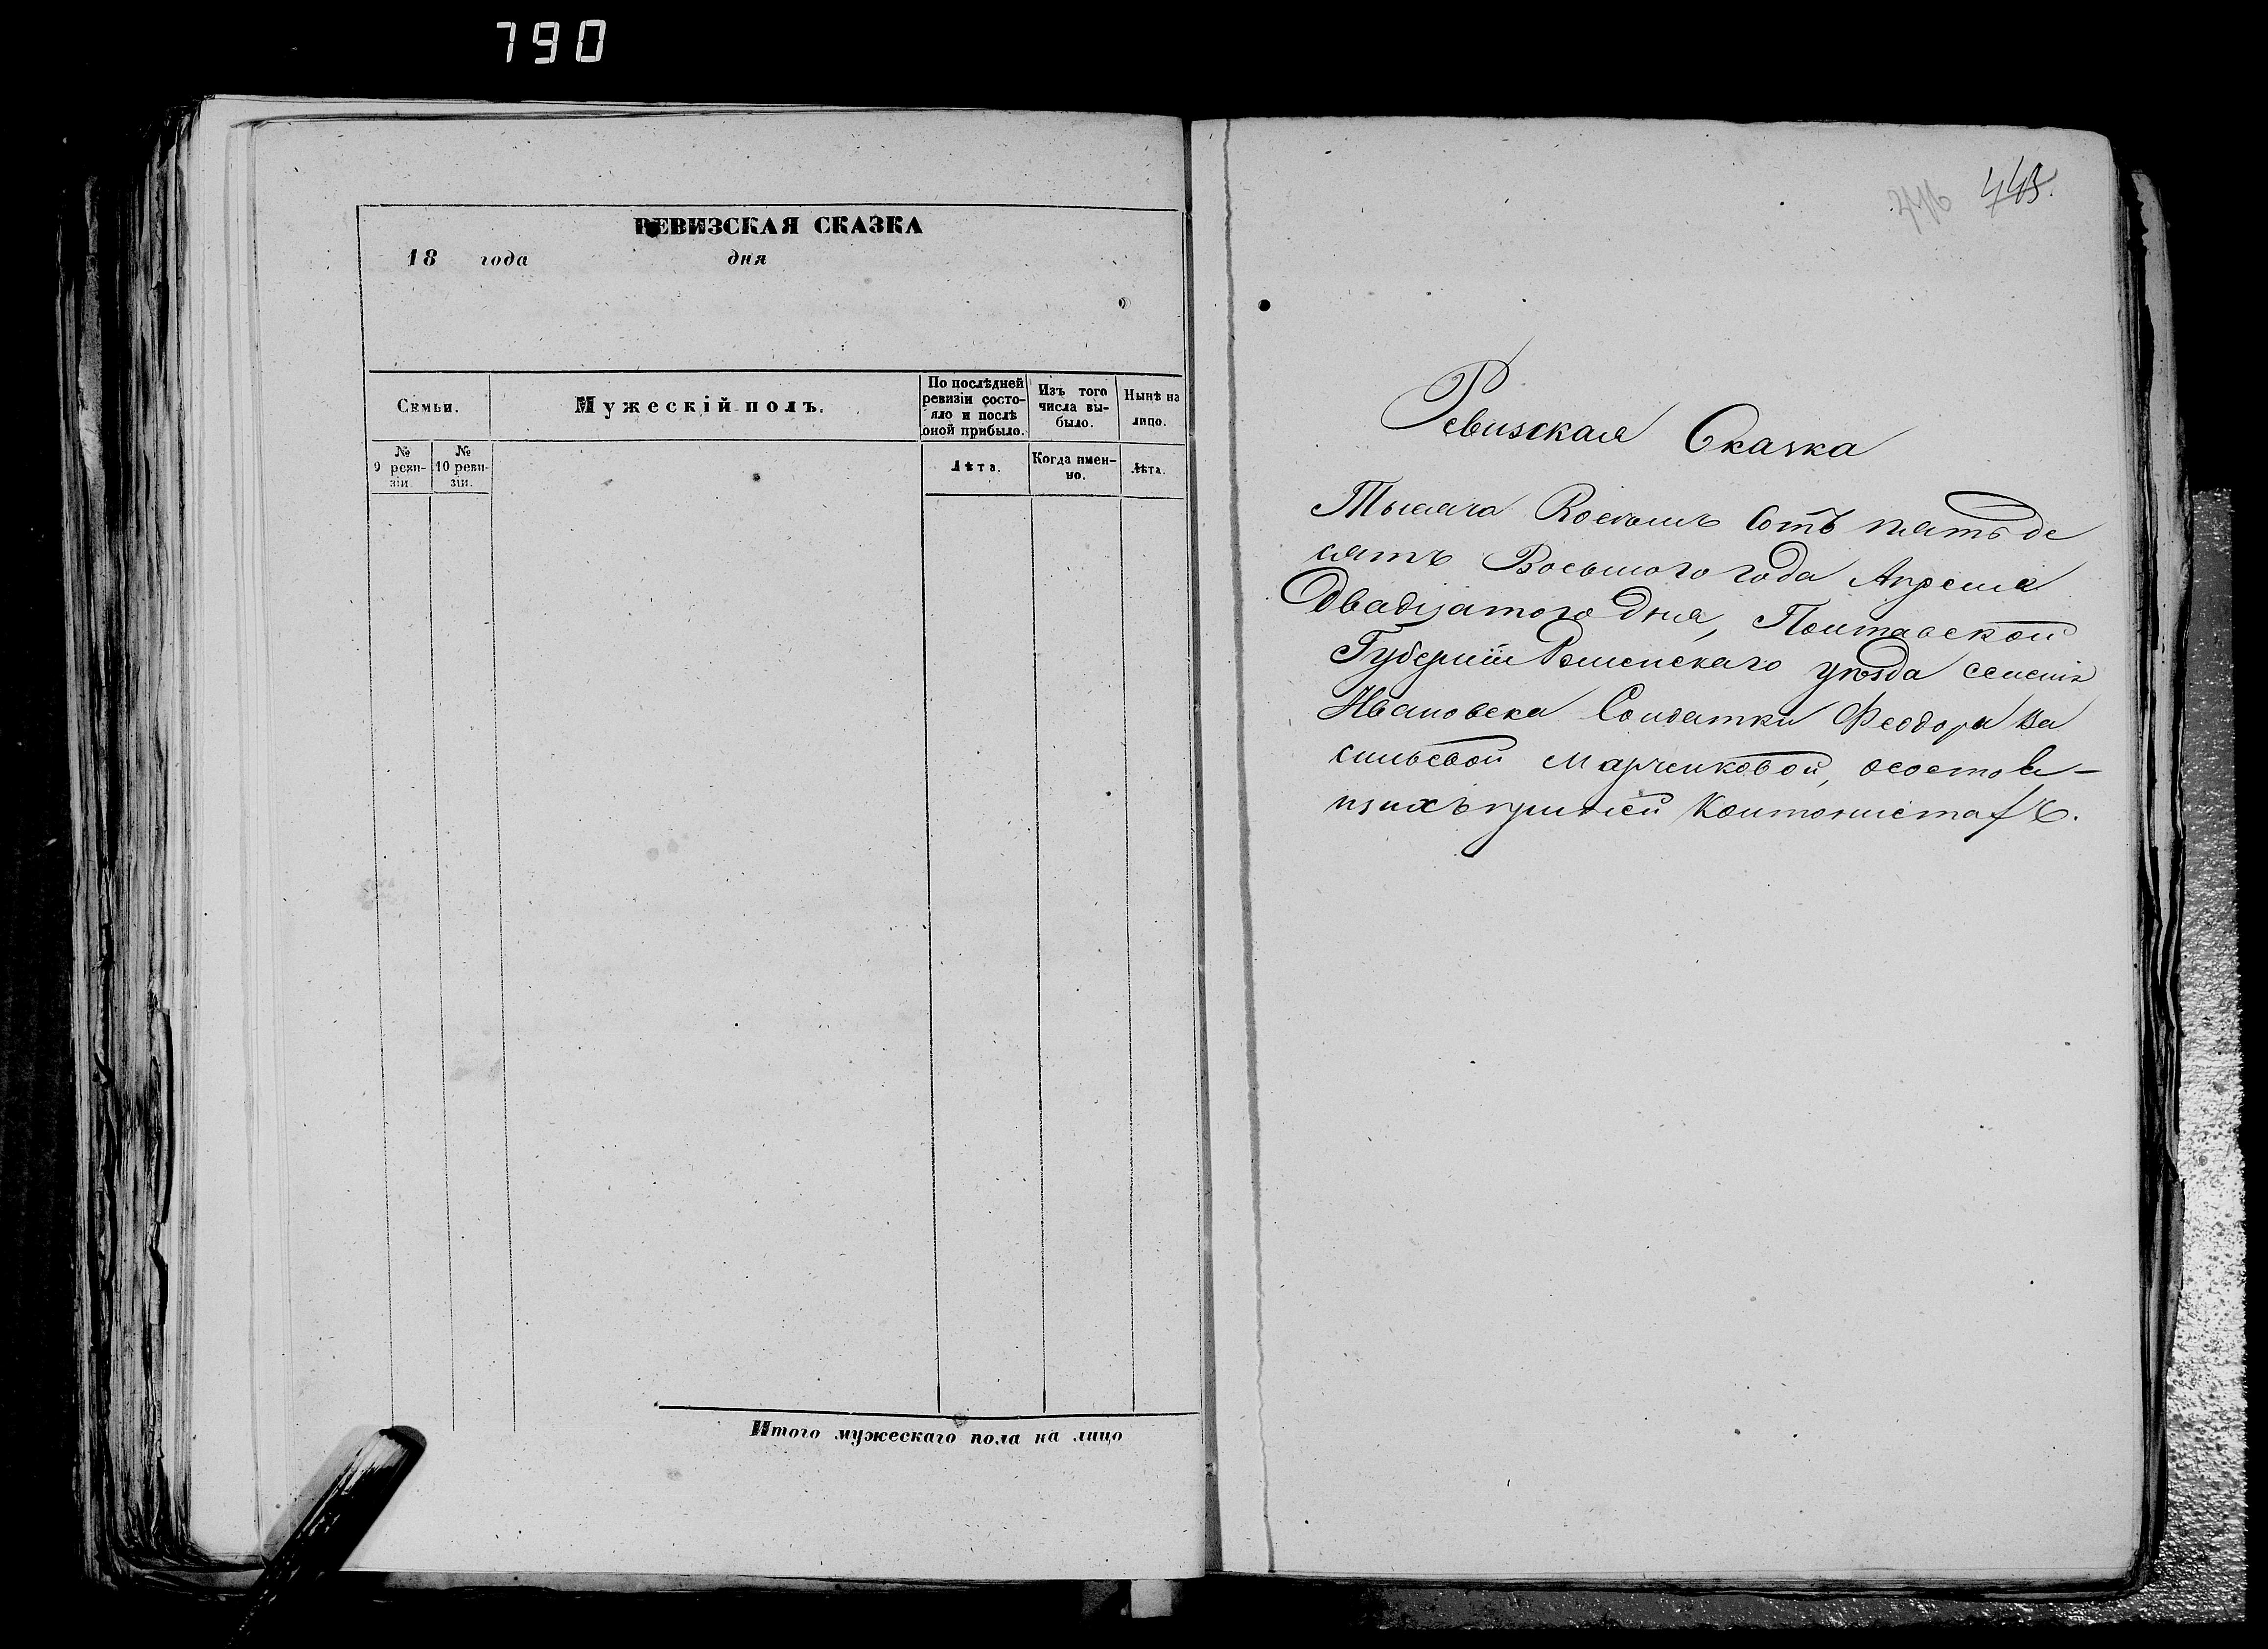 790
РЕВИЗСКАЯ СКАЗКА
18 года дня
Семьи.
Мужескій полъ.
По послѣдней
ревизіи состо-
яло и послѣ
оной прибыло.
Изъ того
числа вы-
было.
Нынѣ на
лицо.
№
9 реви-
зіи.
№
10 реви-
зіи.
Лѣта.
Когда имен-
но.
Лѣта.
Итого мужескаго пола на лицо
Ревизская Сказка
Тысяча Восемь Сотъ пятьде
сятъ Восьмого года Апреля
Двадцатого дня, Полтавской
Губерніи Роменскаго уѣзда
Ивановска Солдатки Феодоры Ва
сильевой Марченковой, осостоя-
кантониста